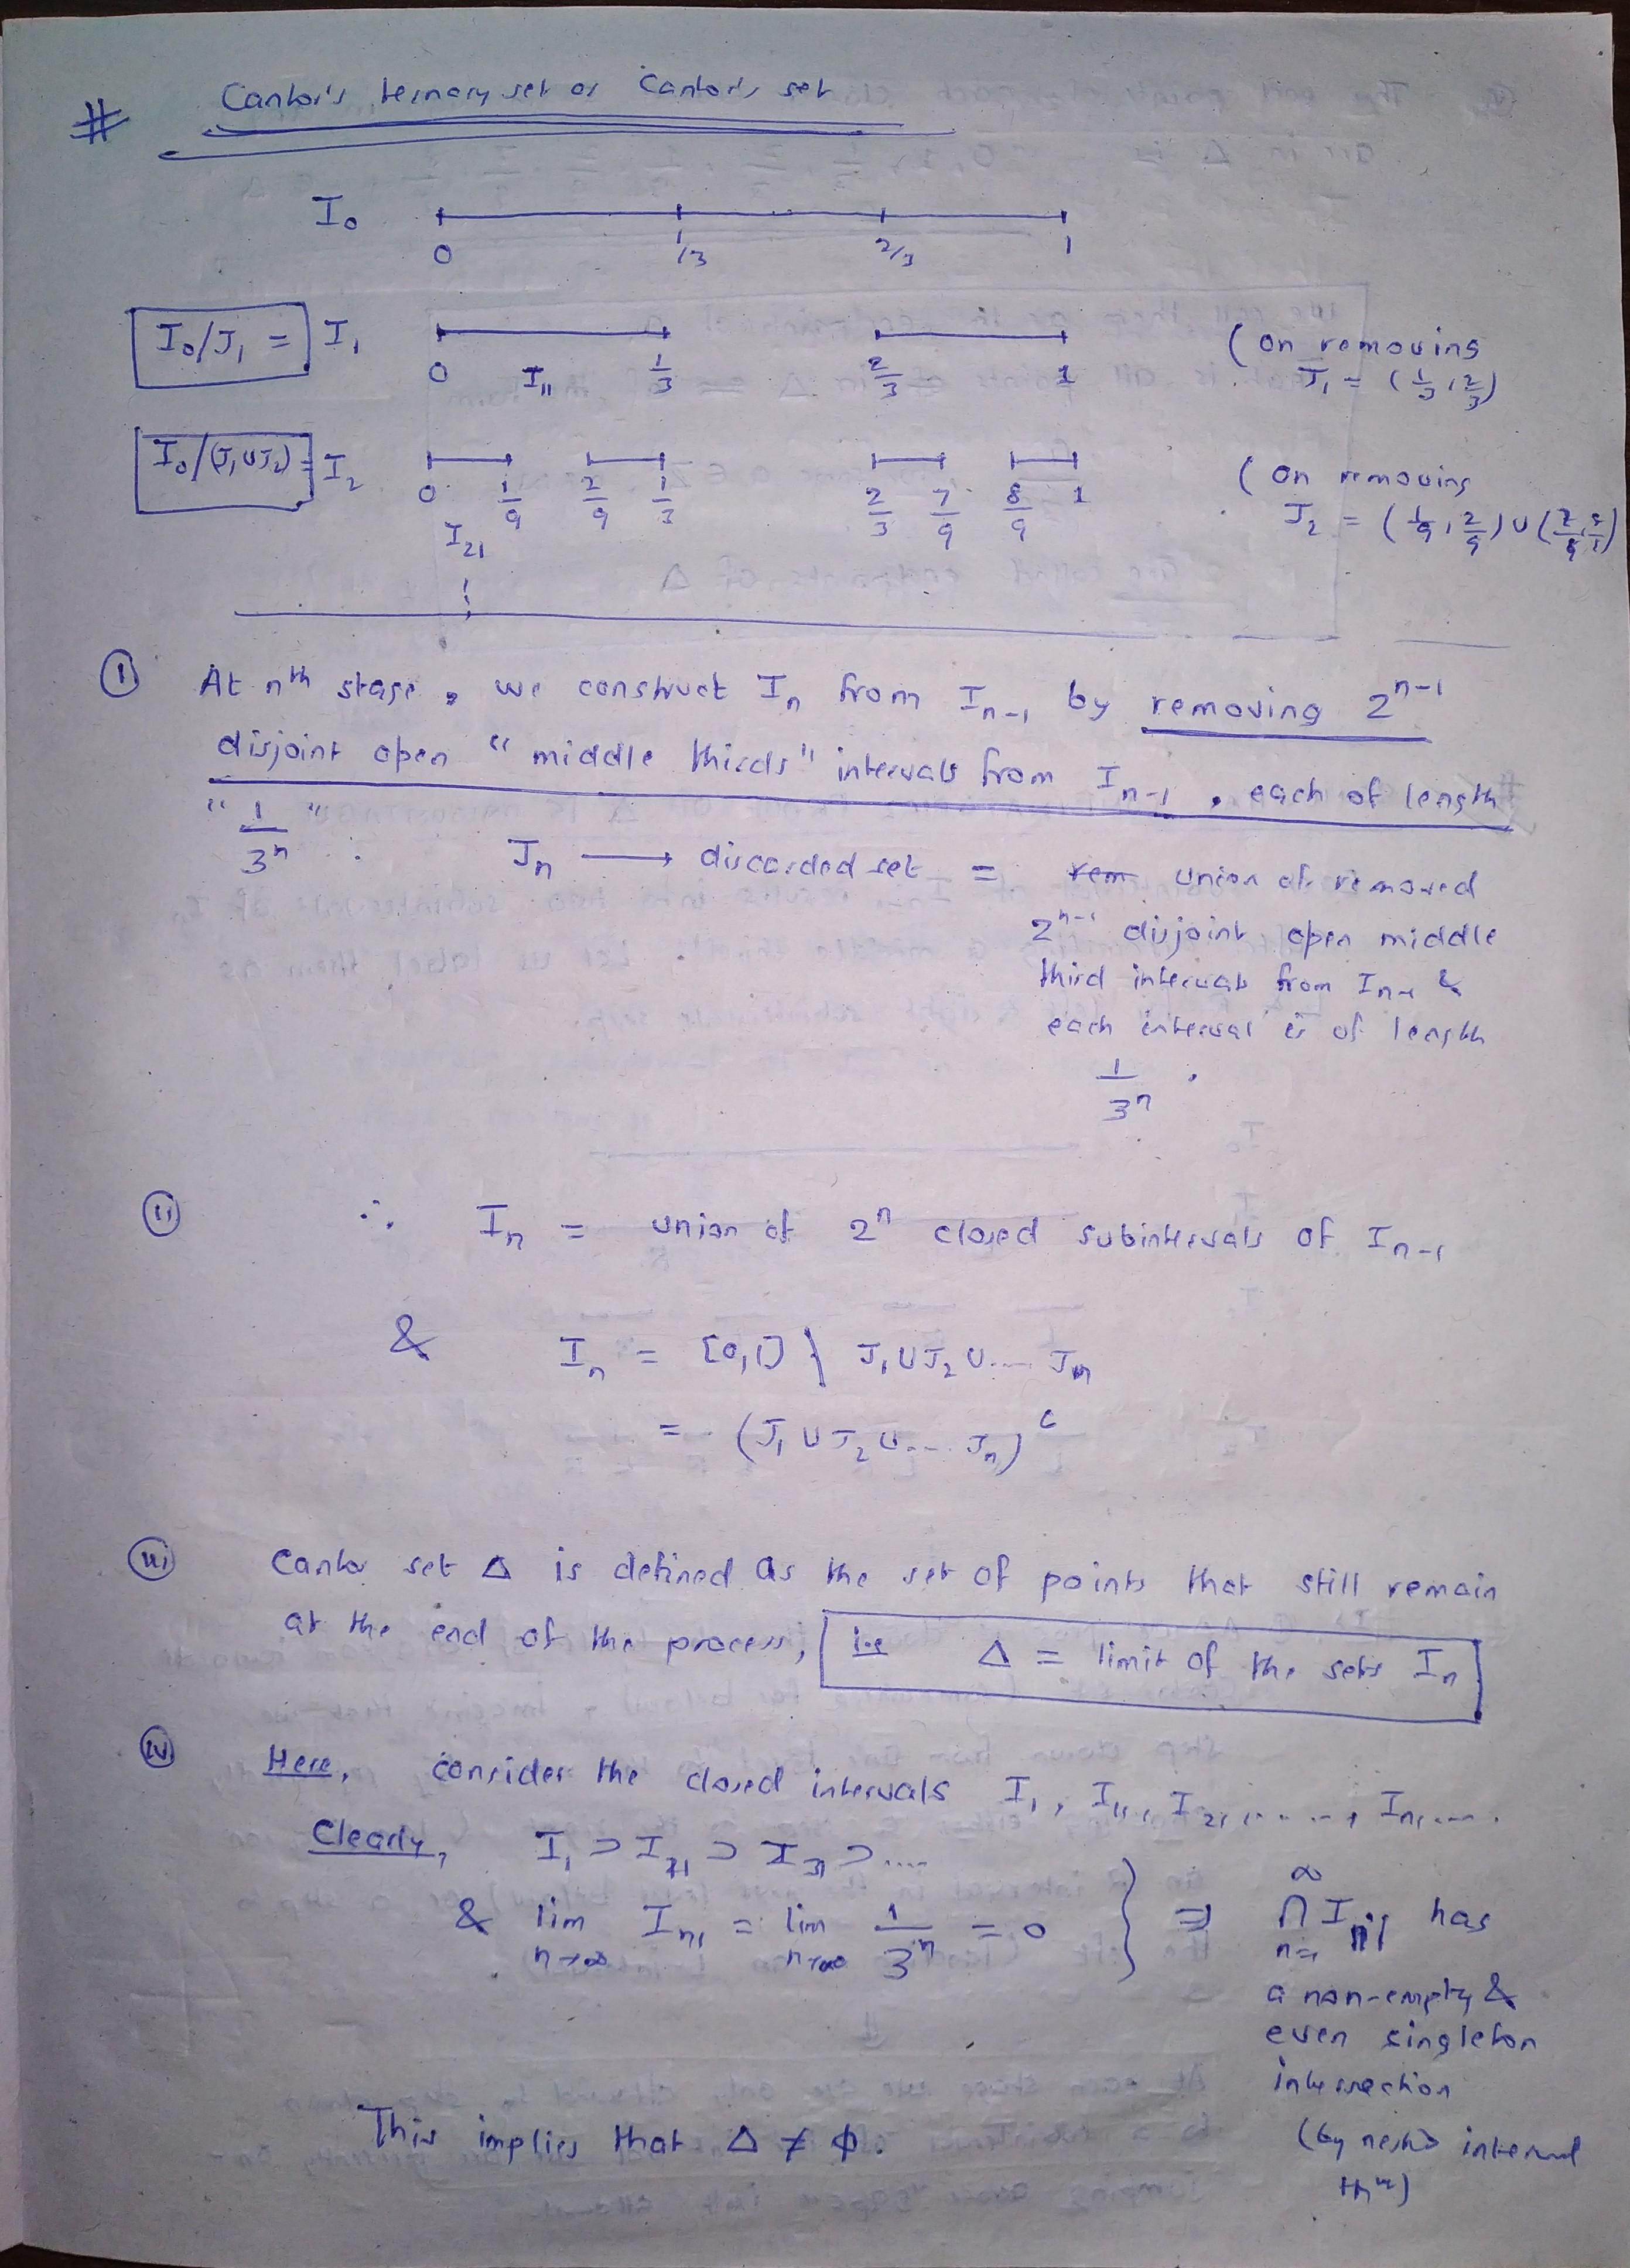 # Cantor's ternary set or Cantor's set
I₀
0 1/3 2/3 1
I₀/J₁ = I₁
0 I₁₁ 1/3 2/3 1
(on removing
J₁ = (1/3, 2/3)
I₀/(J₁∪J₂) = I₂
0 1/9 2/9 1/3 2/3 7/9 8/9 1
I₂₁
(on removing
J₂ = (1/9, 2/9) ∪ (
(i) At nth stage, we construct Iₙ from Iₙ₋₁ by removing 2ⁿ⁻¹
disjoint open "middle thirds" intervals from Iₙ₋₁, each of length
"1/3ⁿ". Jₙ ⟶ discarded set = union of removed
2ⁿ⁻¹ disjoint open middle
third intervals from Iₙ₋₁ &
each interval is of length
1/3ⁿ.
(ii) ∴ Iₙ = union of 2ⁿ closed subintervals of Iₙ₋₁
& Iₙ = [0,1] \ J₁∪J₂∪... Jₙ
= (J₁∪J₂∪... Jₙ)ᶜ
(iii) Cantor set Δ is defined as the set of points that still remain
at the end of the process, i.e Δ = limit of the sets Iₙ
(iv) Here, consider the closed intervals I₁, I₁₁, I₂₁, ......, Iₙ₁, ....
Clearly, I₁ ⊃ I₂₁ ⊃ I₃₁ ⊃ ....
& lim n→∞ Iₙ₁ = lim n→∞ 1/3ⁿ = 0 } ⇒ ∞ ∩ n=1 Iₙ₁ has
a non-empty &
even singleton
intersection
(by nested interval
thm)
This implies that Δ ≠ ϕ.